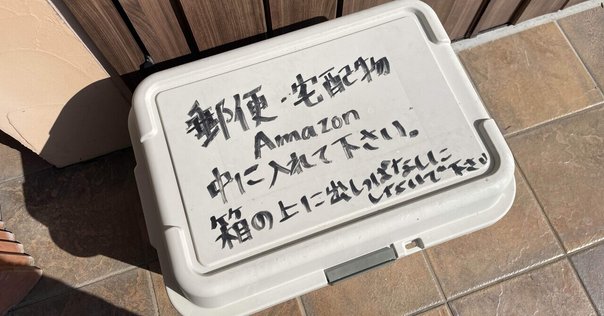 郵便・宅配物
Amazon
中に入れて下さい。
箱の上に出しっぱなしに
しないで下さい